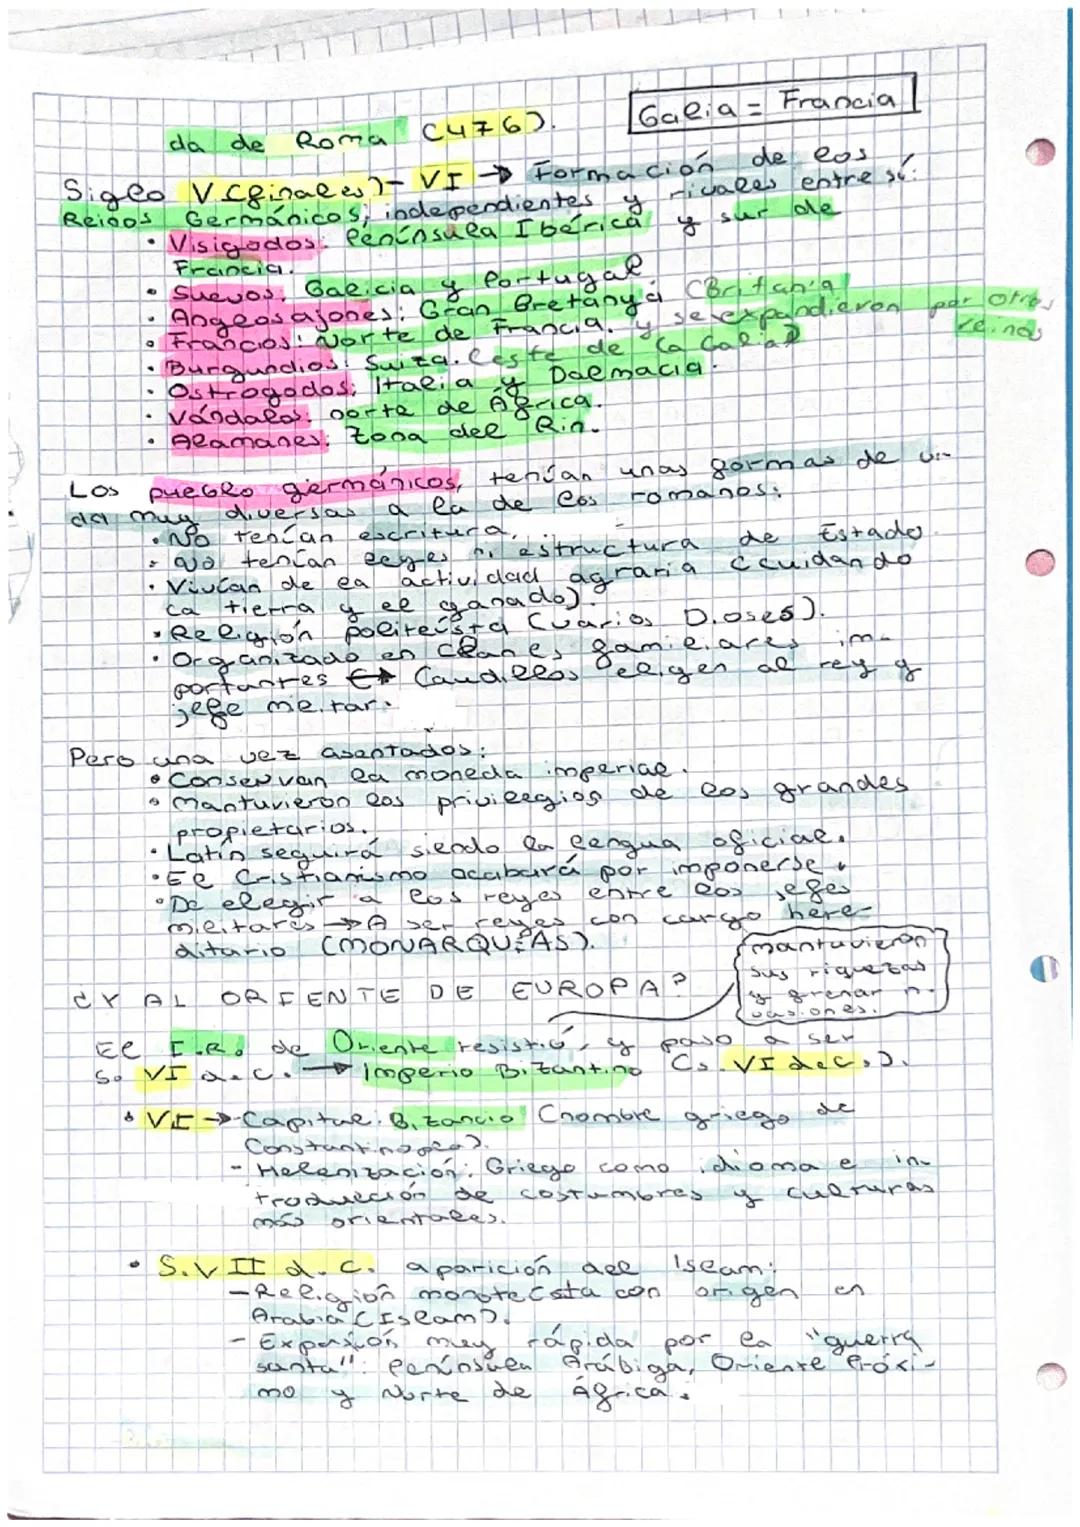 Galia = Francia
da de Roma (476).
Siglo V (finales) - VI → Formación de los
Reinos Germánicos; independientes y rivales entre sí:
• Visigodos: Península Ibérica y sur de
Francia.
• Suevos: Galicia y Portugal
• Anglosajones: Gran Bretanya (Britania)
• Francos: Norte de Francia. y se expandieron por otros
reinos
• Burgundios: Suiza. (este de la Galia)
• Ostrogodos: Italia y Dalmacia.
• Vándalos: norte de África.
• Alamanes: Zona del Rin.
Los pueblo germánicos, tenían unas formas de vi-
da muy diversas a la de los romanos:
• No tenían escritura.
• No tenían leyes ni estructura de Estado.
• Vivían de la actividad agraria (cuidando
la tierra y el ganado).
• Religión politeísta (varios Dioses).
• Organizado en clanes familiares im-
portantes → Caudillos eligen al rey y
jefe militar.
Pero una vez asentados:
• Conservan la moneda imperial.
• Mantuvieron los privilegios de los grandes
propietarios.
• Latín seguirá siendo la lengua oficial.
• El Cristianismo acabará por imponerse.
• De elegir a los reyes entre los jefes
militares → A ser reyes con cargo here-
ditario (MONARQUÍAS).
¿Y AL ORIENTE DE EUROPA?
mantuvieron
sus riquezas
y frenar in-
vasiones.
El I.R. de Oriente resistió, y paso a ser
S. VI d.C. → Imperio Bizantino (S. VI d.C.).
• VI → -Capital: Bizancio (nombre griego de
Constantinopla).
- Helenización: Griego como idioma e in-
troducción de costumbres y culturas
más orientales.
• S. VII d.C. aparición del Islam:
- Religión monoteísta con origen en
Arabia (Islam).
- Expansión muy rápida por la "guerra
santa": Península Arábiga, Oriente Próxi-
mo y Norte de África.